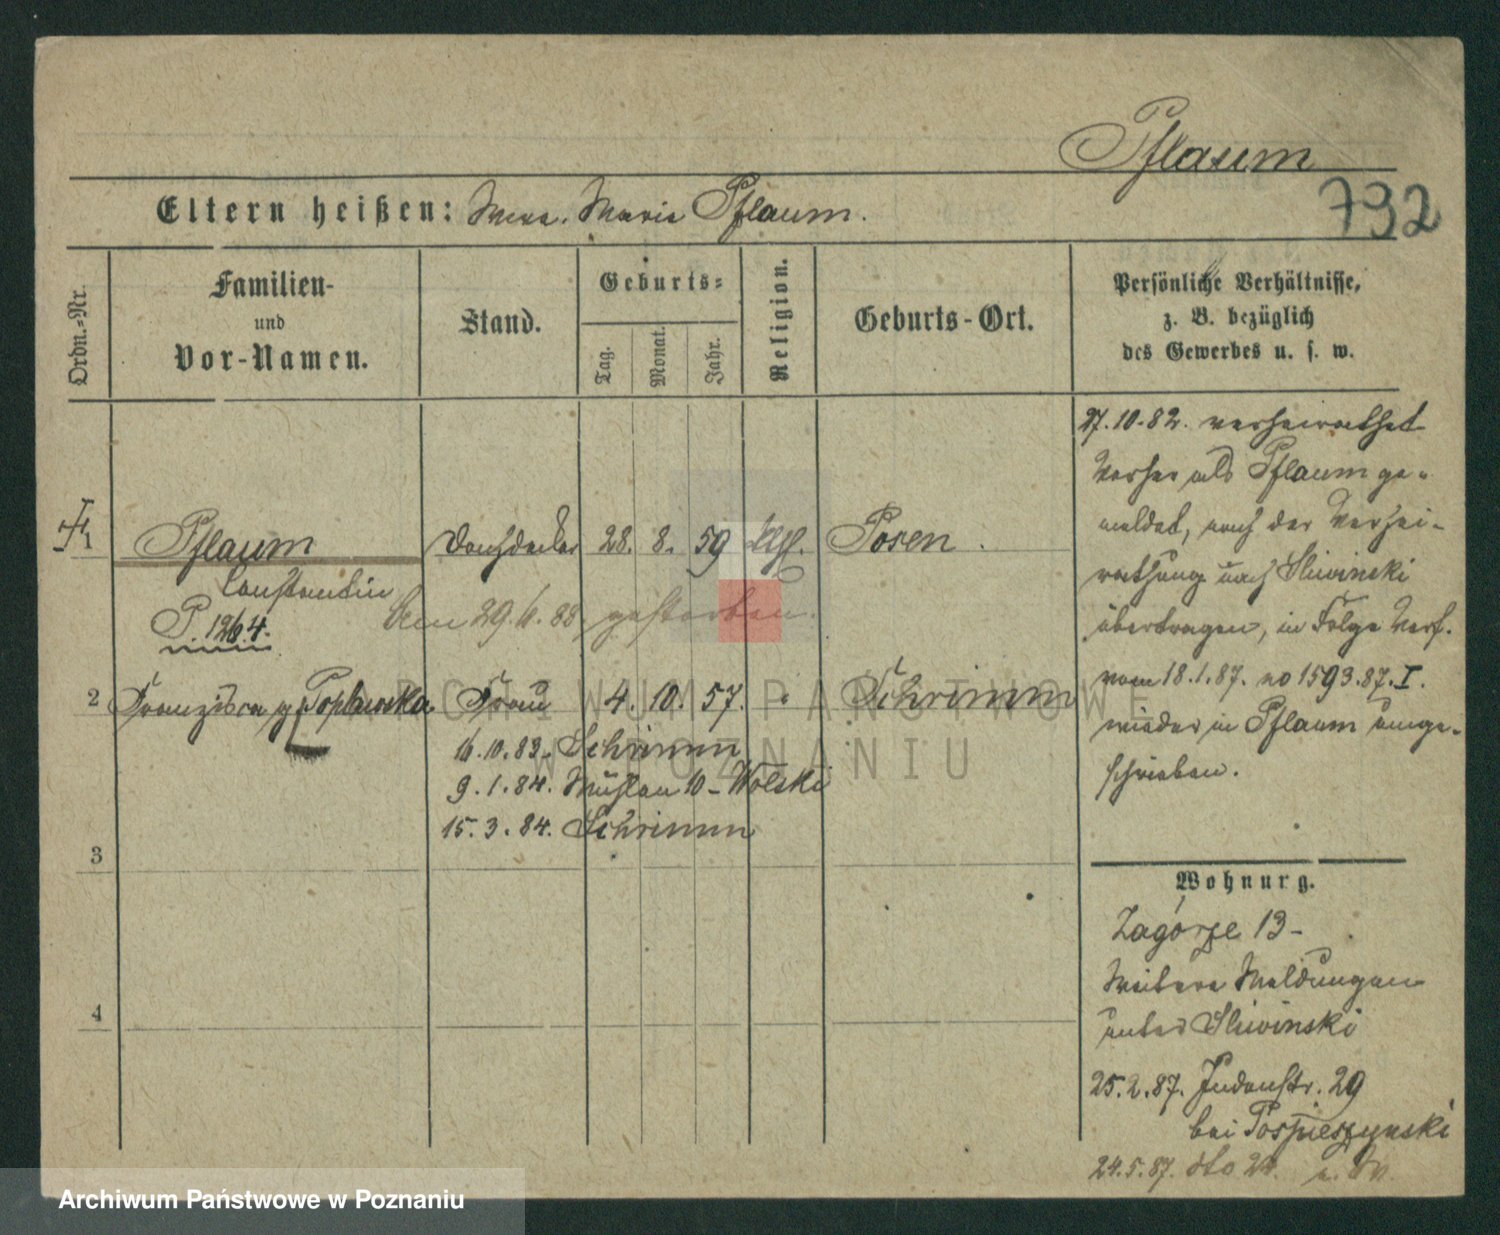 Pflaum
792
Eltern heißen: Marie Pflaum.
Ordn.-Nr.
Familien-
und
Vor-Namen.
Stand.
Geburts-
Tag.
Monat.
Jahr.
Religion.
Geburts-Ort.
Persönliche Verhältnisse,
z. B. bezüglich
des Gewerbes u. s. w.
27.10.82. verheirathet
Vorher als Pflaum ge-
meldet, nach der Verhei-
rathung nach Sliwinski
übertragen, in Folge Verf.
vom 18.1.87. no 1593.87.I.
wieder in Pflaum umge-
schrieben.
1 Pflaum Dachdecker 28. 8. 59 kth. Posen.
Constantin
Am 29.6.88 gestorben.
P. 1264.
2 Franziska g. Poplawska Frau 4. 10. 57. Schrimm
16.10.83. Schrimm
9.1.84. Mühlen 10 - Wolski
15.3.84. Schrimm
3
4
Wohnung.
Zagórze 13-
Weitere Meldungen
unter Sliwinski
25.2.87. Judenstr. 29
bei Pospieszynski
24.5.87. dto
ARCHIWUM PAŃSTWOWE
W POZNANIU
Archiwum Państwowe w Poznaniu